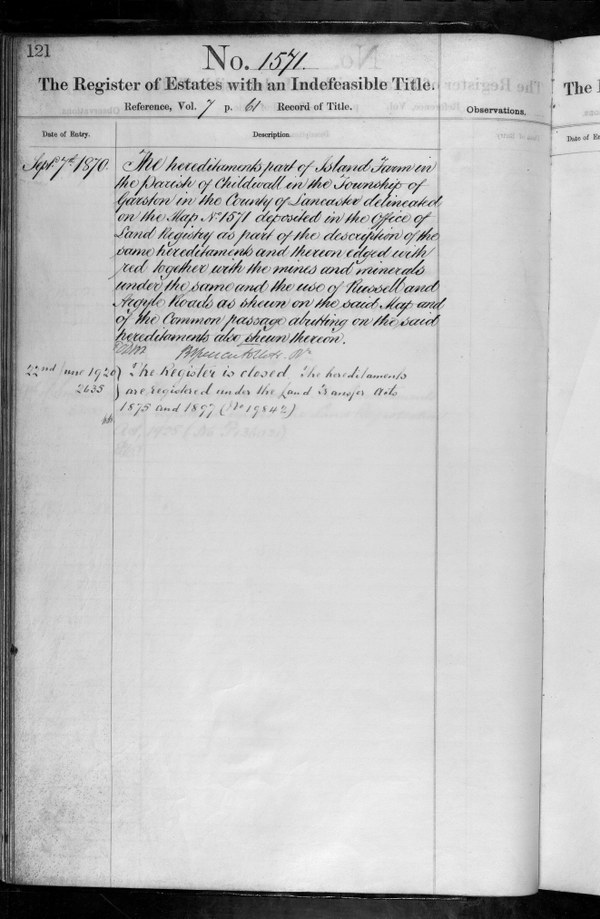 121
No. 1571.
The Register of Estates with an Indefeasible Title.
Reference, Vol. 7 p. 61 Record of Title.
Observations.
Date of Entry.
Description.
Sept. 7th 1870.
The hereditaments part of Island Farm in
the Parish of Childwall in the Township of
Garston in the County of Lancaster delineated
on the Map No 1571 deposited in the Office of
Land Registry as part of the description of the
same hereditaments and thereon edged with
red together with the mines and minerals
under the same and the use of Russell and
Argyle Roads as shewn on the said Map and
of the Common passage abutting on the said
hereditaments also shewn thereon.
22nd June 1920
2635
The Register is closed. The hereditaments
are registered under the Land Transfer Acts
1875 and 1897 (No 19842)
The
Date of E